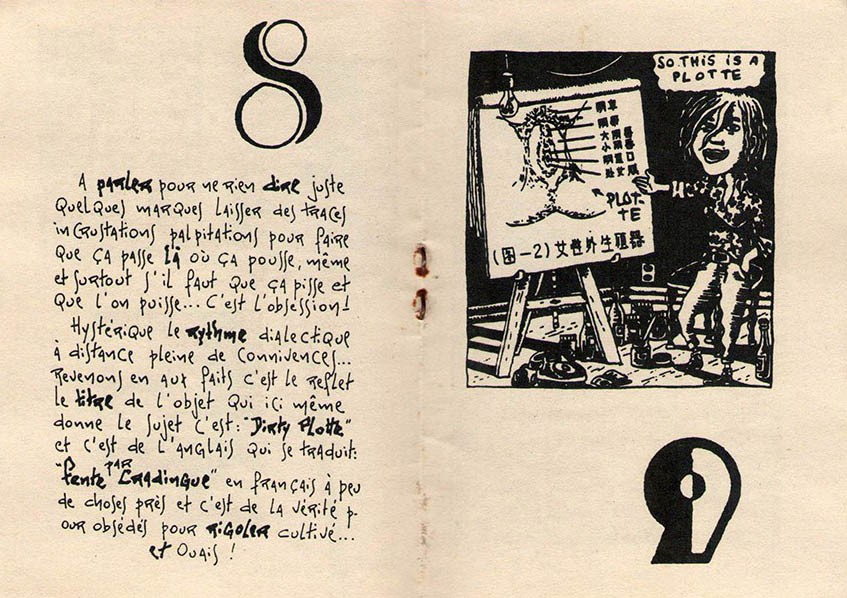 8
A parler pour ne rien dire juste
quelques marques laisser des traces
incrustations palpitations pour faire
que ça passe là où ça pousse, même
et surtout s'il faut que ça pisse et
que l'on puisse... C'est l'obsession!
Hystérique le rythme dialectique
à distance pleine de connivences...
Revenons en aux faits c'est le reflet
le titre de l'objet qui ici même
donne le sujet c'est: "Dirty Plotte"
et c'est de l'anglais qui se traduit:
"Fente PAR Cradingue" en français à peu
de choses près et c'est de la vérité p-
our obsédés pour rigoler cultivé...
et Ouais !
SO THIS IS A
PLOTTE
阴阜
阴蒂
大阴唇
小阴唇
阴道口
处女膜
PLOT-
TE
(图-2) 女性外生殖器
9